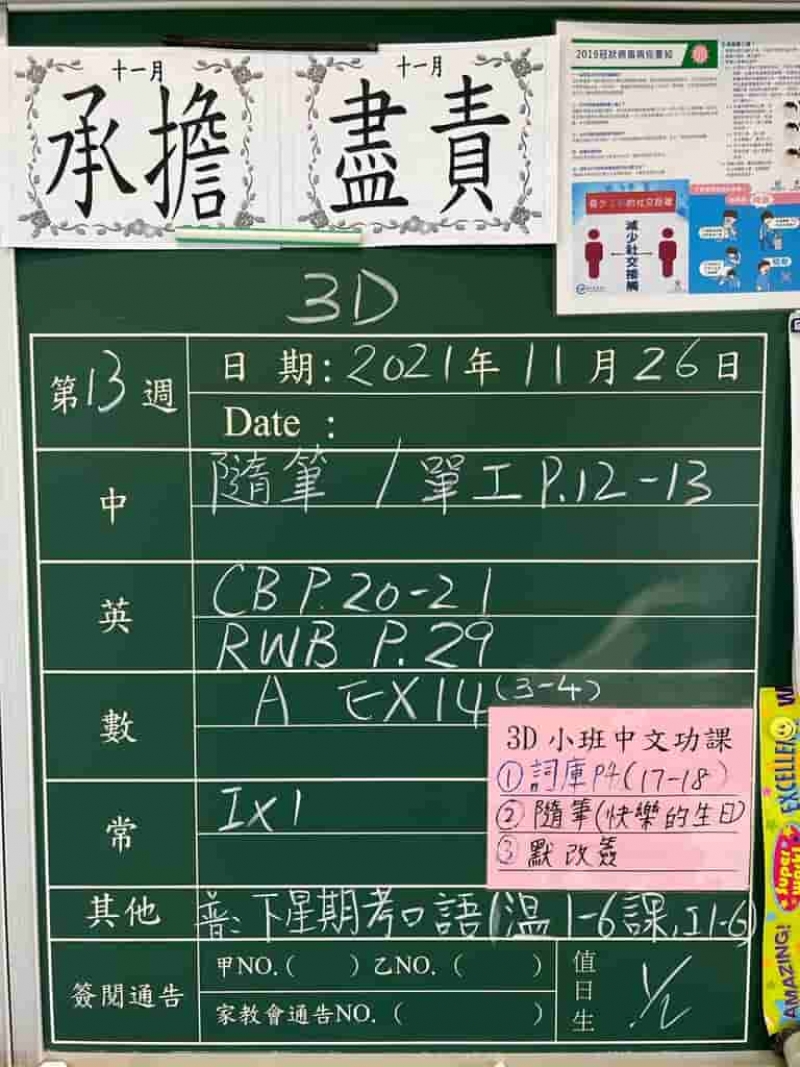 十一月
承擔
十一月
盡責
2019冠狀病毒病你要知
減少社交接觸
3D
第13週
日 期：2021年11月26日
Date :
中
隨筆 / 單工 P.12-13
英
CB P.20-21
RWB P.29
數
A EX14 (3-4)
3D 小班中文功課
① 詞庫P4(17-18)
② 隨筆(快樂的生日)
③ 默改簽
常
Ix1
其他
普: 下星期考口語(温1-6課,工1-6)
簽閱通告
甲NO.( ) 乙NO. ( )
家教會通告NO. ( )
值日生
1/2
EXCELLENT
Super
work!
AMAZING!